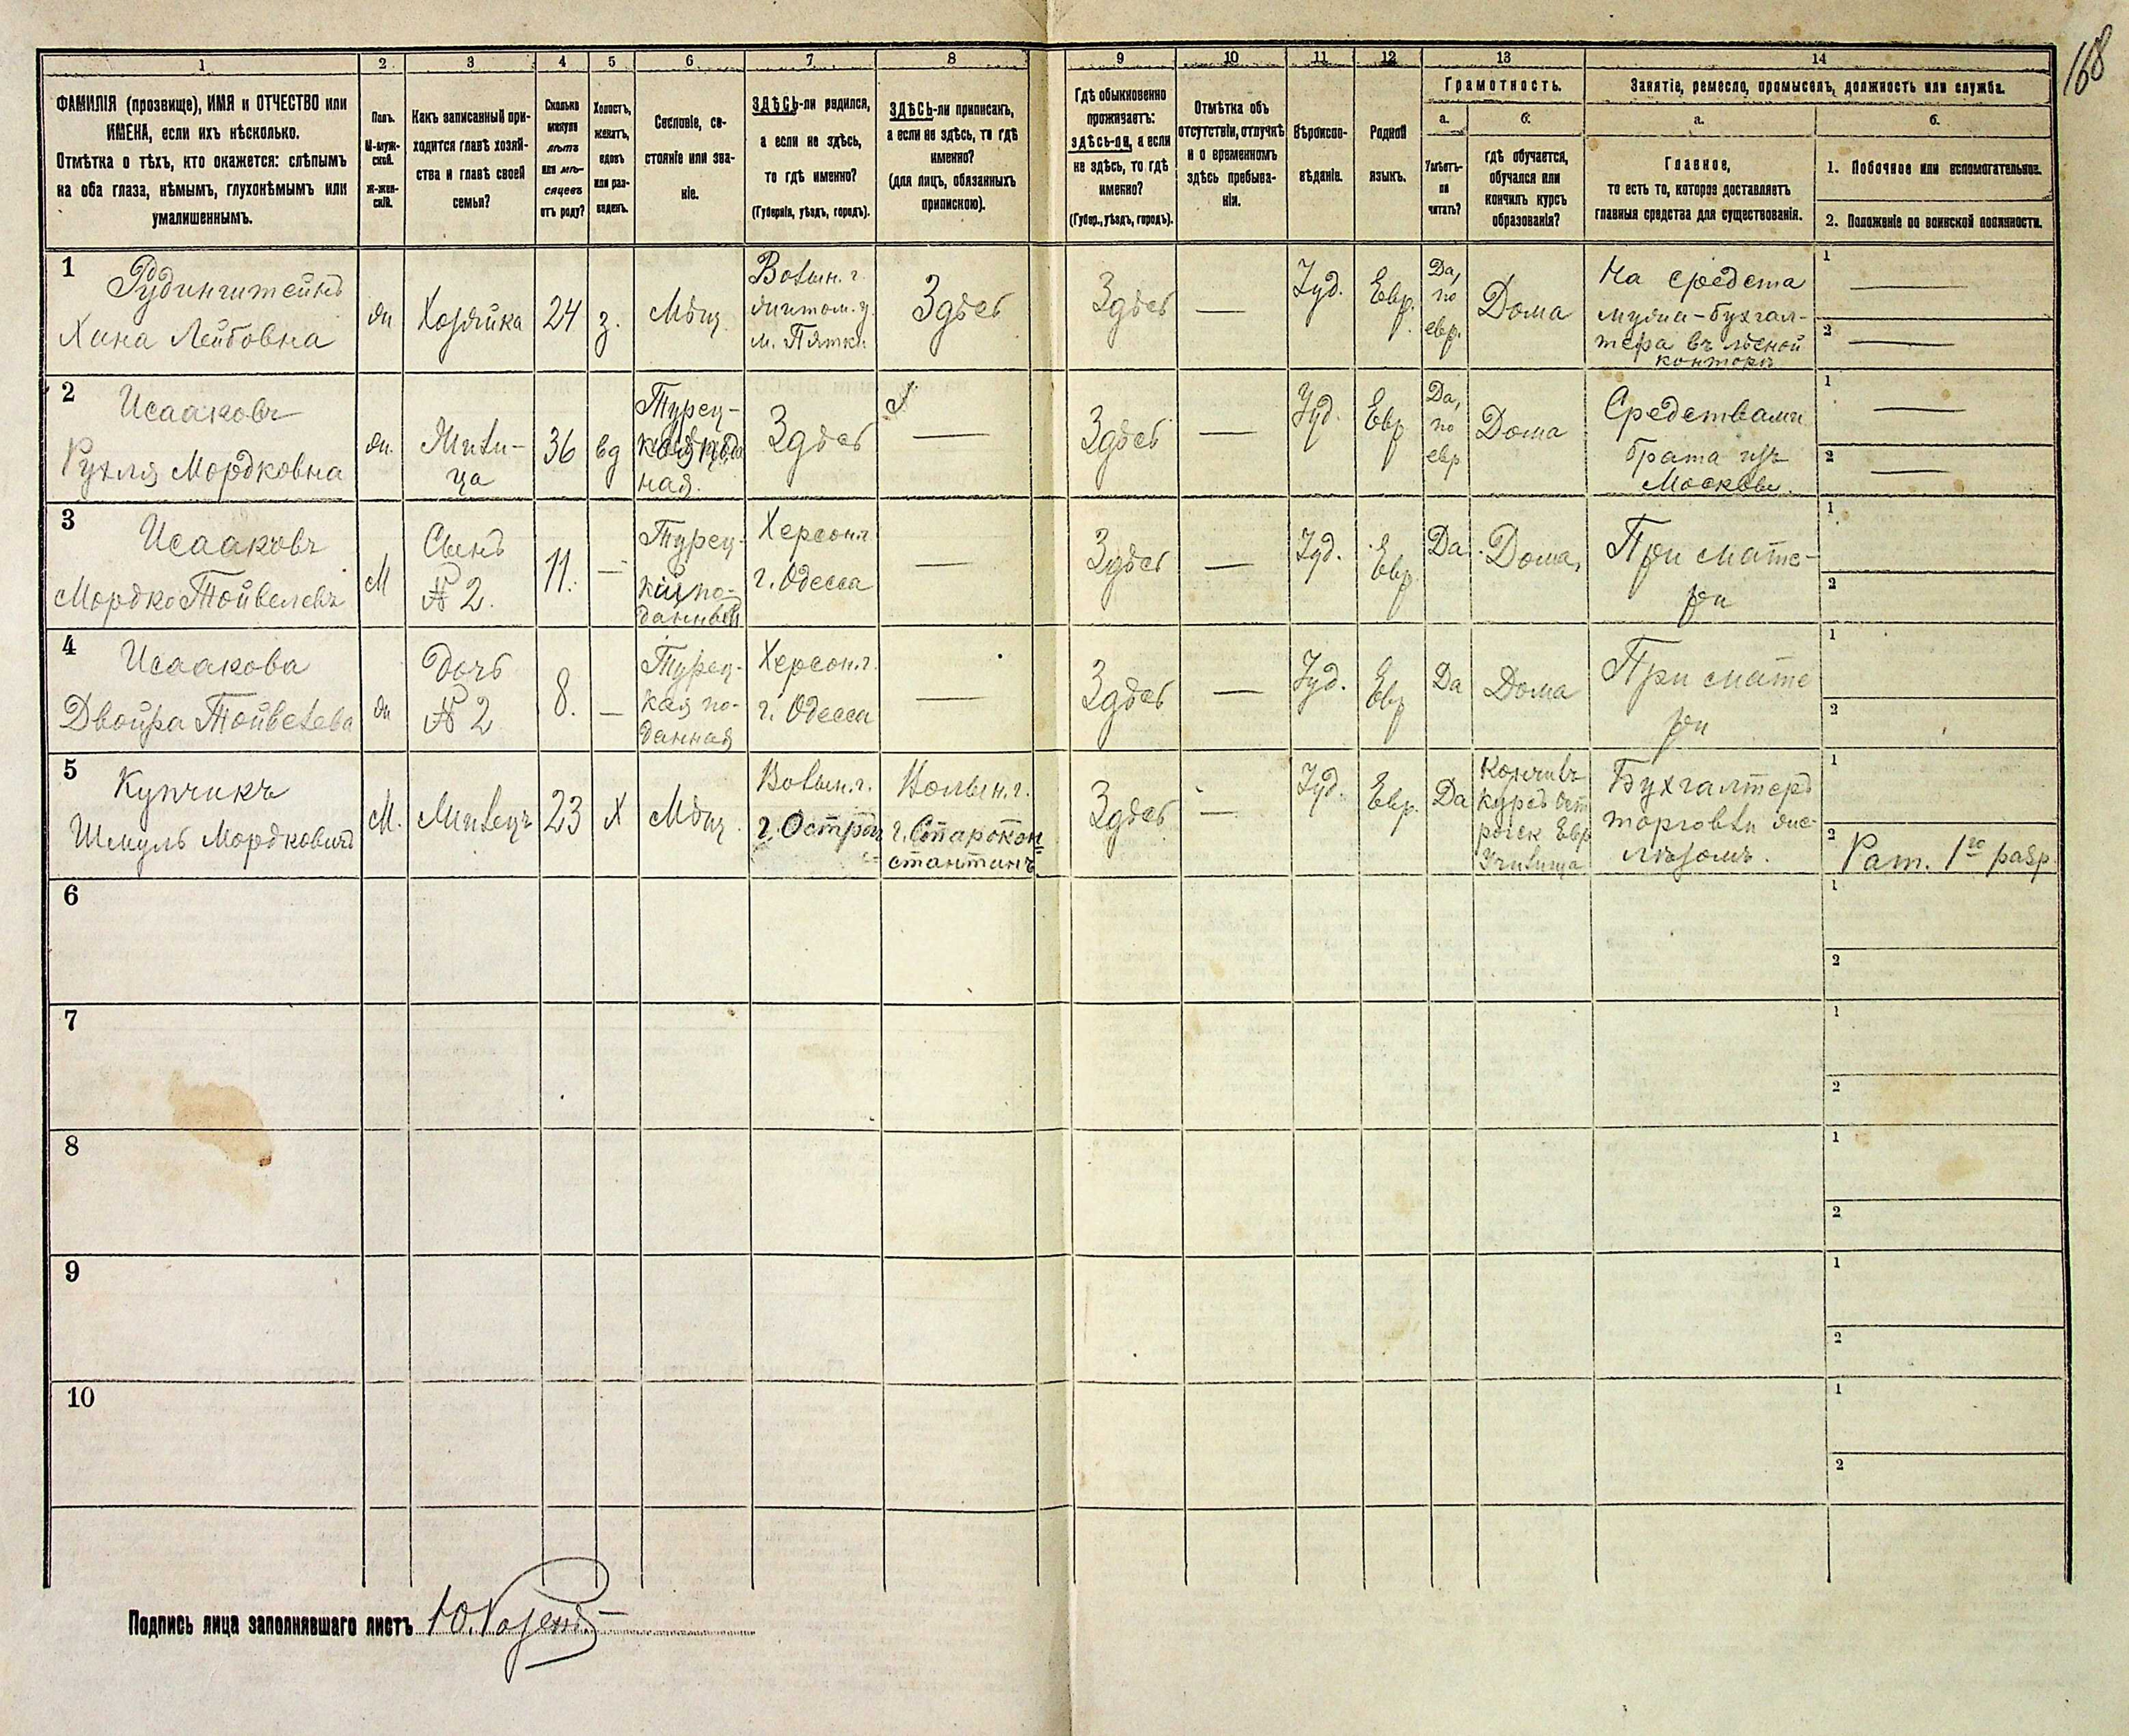 168
1 2 3 4 5 6 7 8 9 10 11 12 13 14
ФАМИЛІЯ (прозвище), ИМЯ и ОТЧЕСТВО или
ИМЕНА, если ихъ нѣсколько.
Отмѣтка о тѣхъ, кто окажется: слѣпымъ
на оба глаза, нѣмымъ, глухонѣмымъ или
умалишеннымъ.
Полъ.
М-муж-
ской.
Ж-жен-
скій.
Какъ записанный при-
ходится главѣ хозяй-
ства и главѣ своей
семьи?
Сколько
минуло
лѣтъ
или мѣ-
сяцевъ
отъ роду?
Холостъ,
женатъ,
вдовъ
или раз-
веденъ.
Сословіе, со-
стояніе или зва-
ніе.
ЗДѢСЬ-ли родился,
а если не здѣсь,
то гдѣ именно?
(Губернія, уѣздъ, городъ).
ЗДѢСЬ-ли приписанъ,
а если не здѣсь, то гдѣ
именно?
(для лицъ, обязанныхъ
припискою).
Гдѣ обыкновенно
проживаетъ:
здѣсь-ли, а если
не здѣсь, то гдѣ
именно?
(Губер., уѣздъ, городъ).
Отмѣтка объ
отсутствіи, отлучкѣ
и о временномъ
здѣсь пребыва-
ніи.
Вѣроиспо-
вѣданіе.
Родной
языкъ.
Грамотность.
а.
Умѣетъ-
ли
читать?
б.
гдѣ обучается,
обучался или
кончилъ курсъ
образованія?
Занятіе, ремесло, промыселъ, должность или служба.
а.
Главное,
то есть то, которое доставляетъ
главныя средства для существованія.
б.
1. Побочное или вспомогательное.
2. Положеніе по воинской повинности.
1
Рудинштейнъ
Хана Лейбовна
жн
Хозяйка
24
з.
Мѣщ.
Волын. г.
Житом. у.
м. Пятки
Здѣсь
Здѣсь
—
Іуд.
Евр.
Да,
по
евр.
Дома
На средства
мужа-бухгал-
тера въ лѣсной
конторѣ
1 —
2 —
2
Исааковъ
Рухля Мордковна
жн.
Жили-
ца
36
вд
Турец-
ная.
Здѣсь
—
Здѣсь
—
Іуд.
Евр
Да,
по
евр
Дома
Средствами
брата изъ
Москвы.
1 —
2 —
3
Исааковъ
Мордко Тойвелевъ
М
Сынъ
№ 2.
11.
—
Турец-
кій по-
данный
Херсон. г.
г. Одесса
—
Здѣсь
—
Іуд.
Евр
Да.
Дома,
При мате-
ри
1
2
4
Исаакова
Двойра Тойвелева
жн
Дочь
№ 2
8.
—
Турец-
кая по-
данная
Херсон. г.
г. Одесса
—
Здѣсь
—
Іуд.
Евр
Да
Дома
При мате
ри
1
2
5
Купчикъ
Шмуль Мордковичъ
М.
Жилецъ
23
Х
Мѣщ.
Волын. г.
г. Острог
Волын. г.
г. Старокон=
стантинъ
Здѣсь
—
Іуд.
Евр.
Да
Кончивъ
курсъ Ост
рожск Евр
Училища
Бухгалтеръ
торговли же-
лѣзомъ.
1
2 Рат. 1го разр.
6
1
2
7
1
2
8
1
2
9
1
2
10
1
2
Подпись лица заполнявшаго листъ